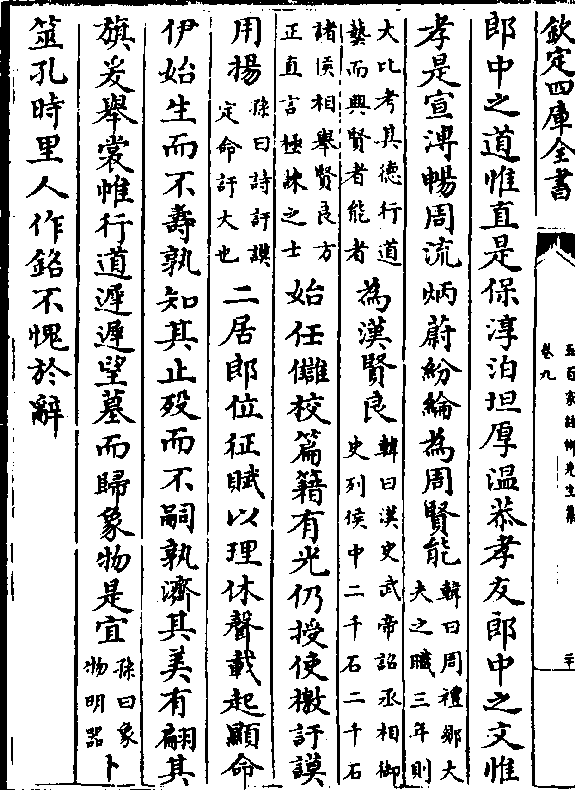 欽定四庫全書
五百家註柳先生集
卷九
二十
郎中之道惟直是保淳泊坦厚温恭孝友郎中之文惟
孝是宣溥暢周流炳蔚紛綸為周賢能
韓曰周禮鄉大
夫之職三年則
大比考其德行道
藝而興賢者能者
為漢賢良
韓曰漢史武帝詔丞相御
史列侯中二千石二千石
諸侯相舉賢良方
正直言極諫之士
始任讎校篇籍有光仍授使檄訏謨
用揚
孫曰詩訏謨
定命訏大也
二居郎位征賦以理休聲載起顯命
伊始生而不壽孰知其止歿而不嗣孰濟其美有翩其
旗爰舉裳帷行道遲遲望墓而歸象物是宜
孫曰象
物明器
卜
筮孔時里人作銘不愧於辭